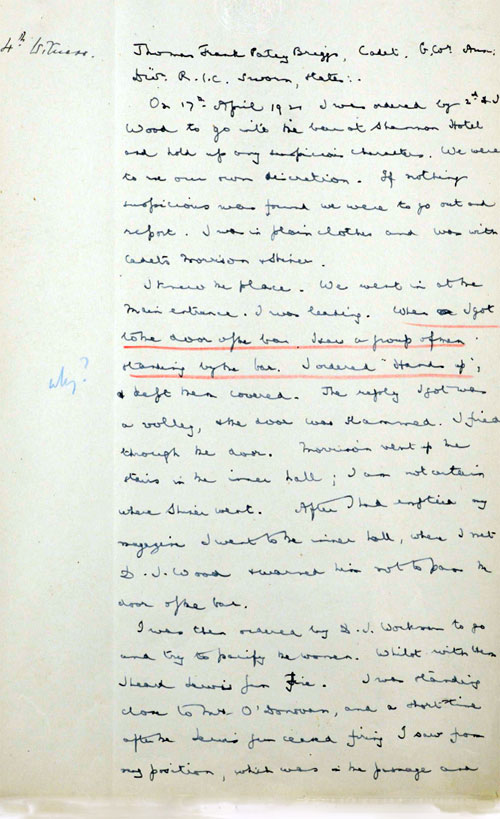 4th Witness.
Thomas Frank Patey Briggs, Cadet. G. Coy. Aux:
Div. R.I.C. Sworn, states:-
On 17th April 1921 I was ordered by 2nd D.I.
Wood to go into the bar at Shannon Hotel
and hold up any suspicious characters. We were
to use our own discretion. If nothing
suspicious was found we were to go out and
report. I was in plain clothes and was with
Cadets Morrison & Shiner.
I knew the place. We went in at the
main entrance. I was leading. When I got
to the door of the bar I saw a group of men
standing by the bar. I ordered "Hands up",
why?
& kept them covered. The reply I got was
a volley, & the door was slammed. I fired
through the door. Morrison went up the
stairs in the inner hall; I am not certain
where Shiner went. After I had emptied my
magazine I went to the inner hall, when I met
D.I. Wood & warned him not to pass the
door of the bar.
I was then ordered by D.I. Workman to go
and try to pacify the women. Whilst with them
I heard Lewis gun fire. I was standing
close to Mrs O'Donovan, and a short time
after the Lewis gun ceased firing I saw from
my position, which was in the passage and